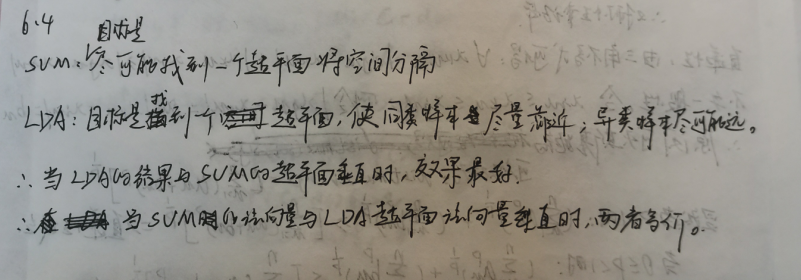 6.4 目标是
SVM: 尽可能找到一个超平面将空间分隔
LDA: 目标是找到一个超平面,使同类样本尽量靠近;异类样本尽可能远。
∴ 当LDA的结果与SVM的超平面垂直时,效果最好.
∴ 当SVM的法向量与LDA超平面法向量垂直时,两者等价。